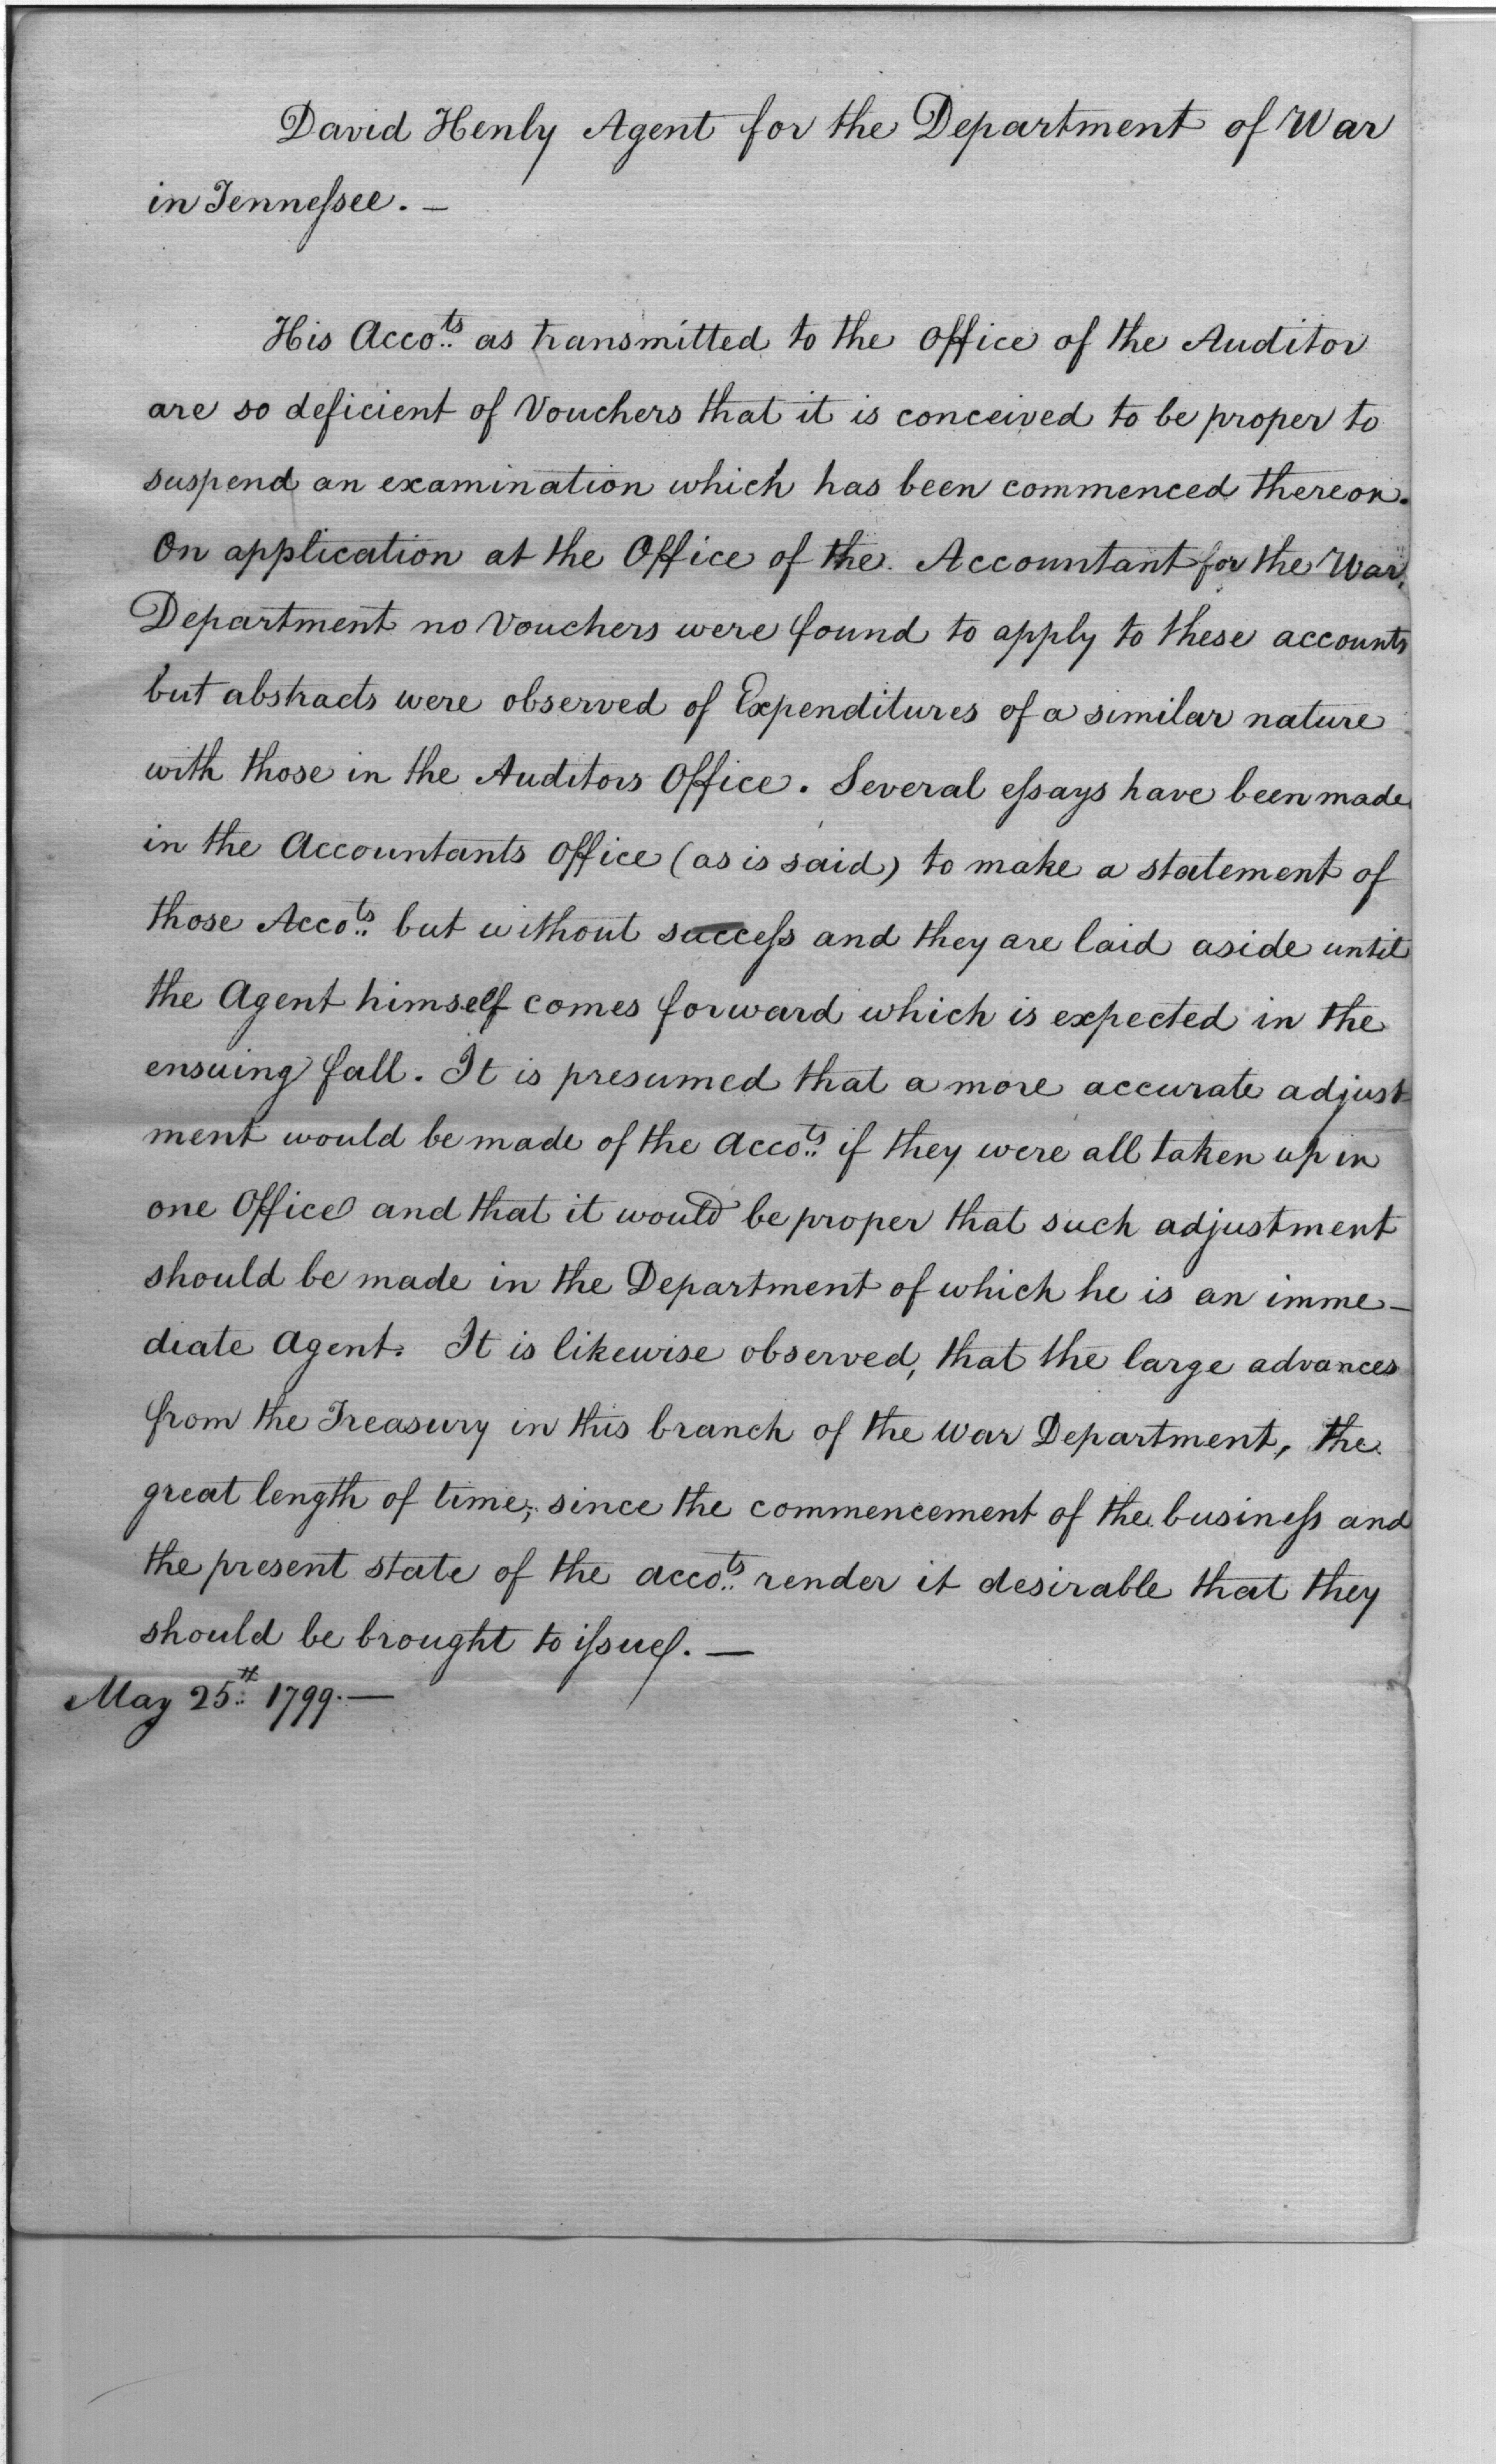 David Henly Agent for the Department of War
in Tenneſsee. —
His Acco.ts as transmitted to the Office of the Auditor
are so deficient of Vouchers that it is conceived to be proper to
suspend an examination which has been commenced thereon.
On application at the Office of the Accountant for the War
Department no Vouchers were found to apply to these accounts
but abstracts were observed of Expenditures of a similar nature
with those in the Auditors Office. Several eſsays have been made
in the Accountants Office (as is said) to make a statement of
those Acco.ts but without succeſs and they are laid aside until
the Agent himself comes forward which is expected in the
ensuing fall. It is presumed that a more accurate adjust-
ment would be made of the Acco.ts if they were all taken up in
one Office and that it would be proper that such adjustment
should be made in the Department of which he is an imme-
diate Agent. It is likewise observed, that the large advances
from the Treasury in this branch of the War Department, the
great length of time, since the commencement of the busineſs and
the present state of the acco.ts render it desirable that they
should be brought to iſsue. —
May 25.th 1799. —